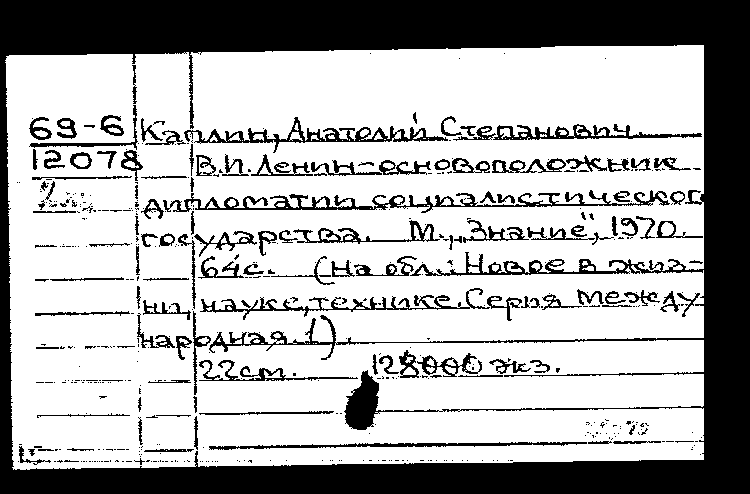 69-6 Каплин, Анатолий Степанович.
12078 В.И. Ленин-основоположник
дипломатии социалистического
государства. М., „Знание“, 1970.
64с. (На обл.: Новое в жиз-
ни, науке, технике. Серия Между-
народная. 1).
22cm. 128000 экз.